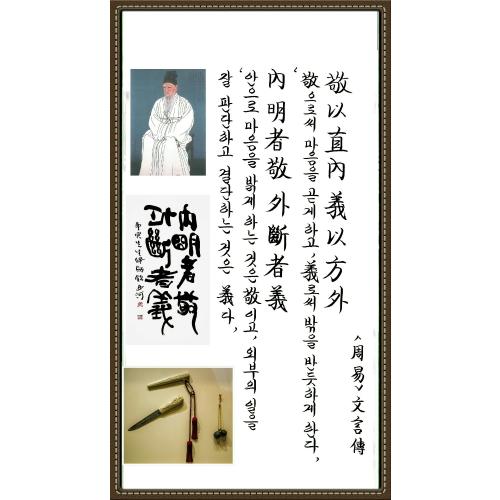 敬以直內 義以方外
‘敬으로써 마음을 곧게 하고, 義로써 밖을 반듯하게 한다,
<周易>文言傳
內明者敬 外斷者義
‘안으로 마음을 밝게 하는 것은 敬이고, 외부의 일을
잘 판단하고 결단하는 것은 義다,
內明者敬
外斷者義